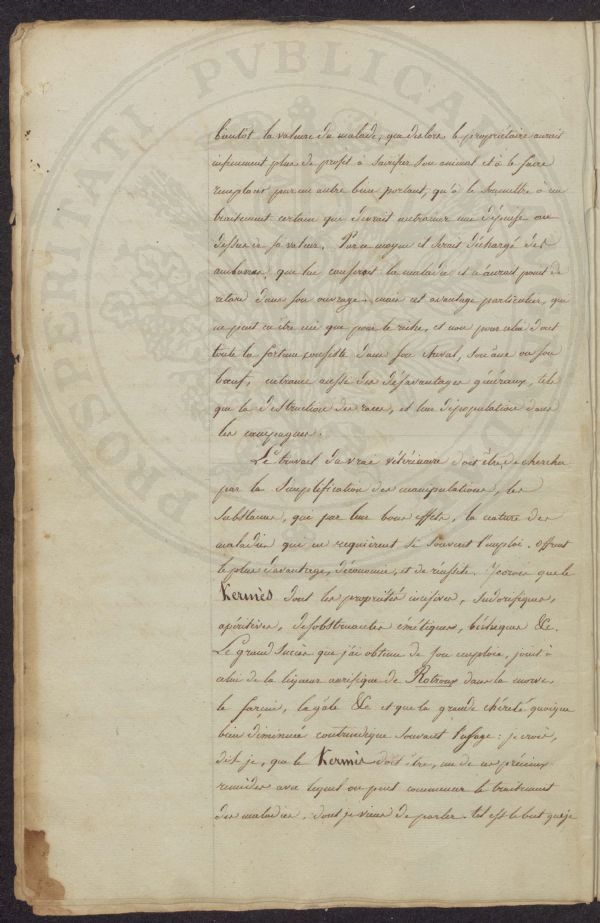 PROSPERITATI PUBLICAE
bientôt la valeur du malade, que deslors le propriétaire aurait
infiniment plus de profit à sacrifier son animal et à le faire
remplacer par un autre bien portant, qu'à le soumettre à un
traitement certain qui devrait entrainer une dépense au
dessus de sa valeur. Par ce moyen il serait déchargé des
embarras que lui causerait la maladie et n'aurait point de
retard dans son ouvrage. mais cet avantage particulier, qui
ne peut en être un que pour le riche, et non pour celui dont
toute la fortune consiste dans son cheval, son âne ou son
bœuf, entraine aussi des désavantages généraux, tels
que la destruction des races, et leur dépopulation dans
les campagnes.
Le travail du vrai vétérinaire doit être de chercher
par la simplification des manipulations, les
substances, qui par leur bons effets, la nature des
maladies qui en requièrent si souvent l'emploi. offrent
le plus d'avantage, d'économie, et de réussite. Je crois que le
Kermès dont les propriétés incisives, sudorifiques,
apéritives, désobstruantes émétiques, béchiques &c.
Le grand succès que j'ai obtenu de son emploie, joint à
celui de la liqueur aurifique de Rotroux dans la morve,
le farcin, la gâle &c et que la grande chèreté quoique
bien diminuée contreindique souvent l'usage: je crois,
dit-je, que le Kermès doit être, un de ces précieux
remèdes avec lequel on peut commencer le traitement
des maladies. dont je viens de parler. tel est le but que je